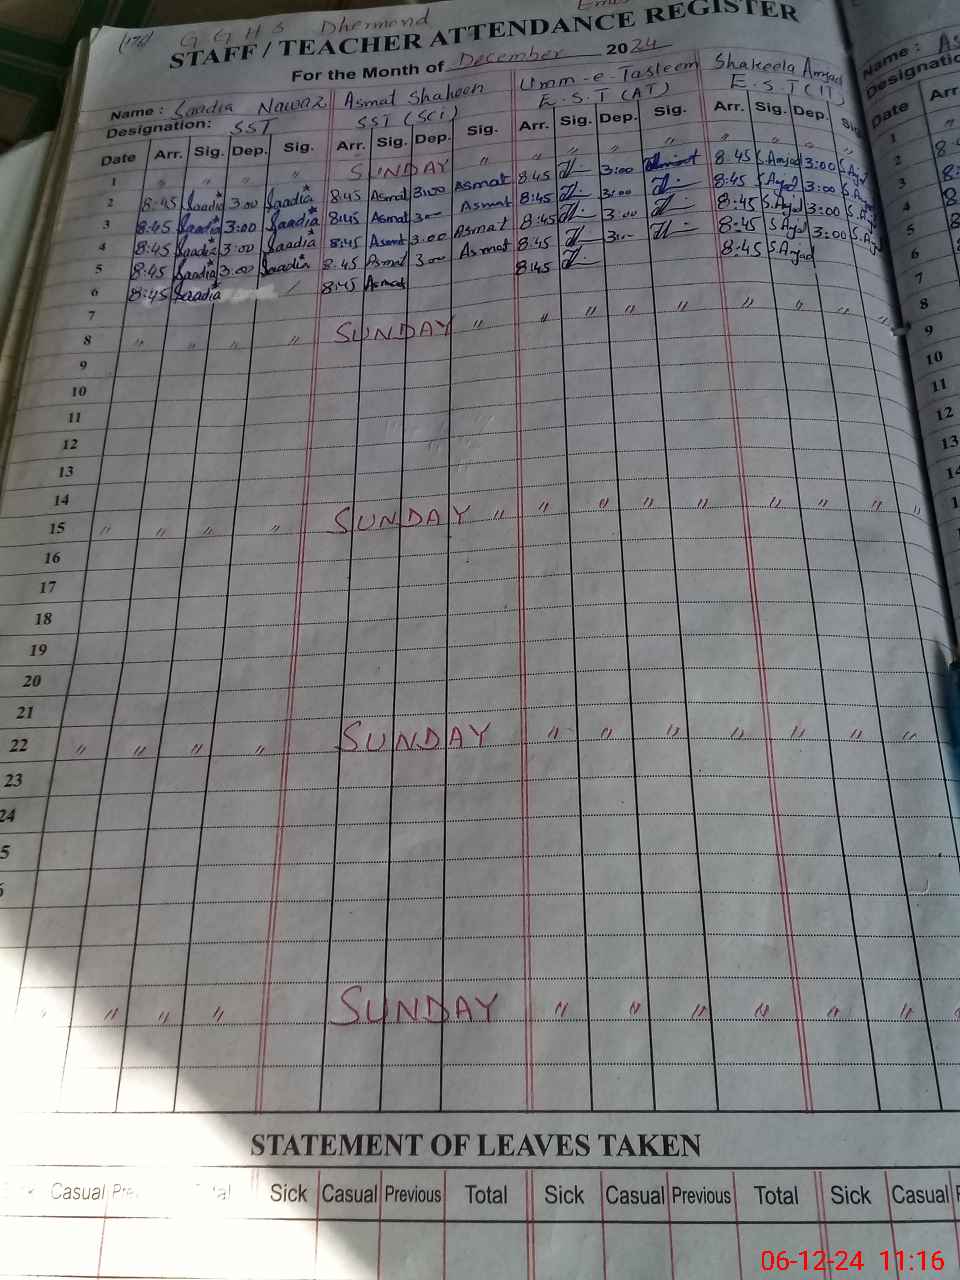 (176) G G H S Dhermond
STAFF / TEACHER ATTENDANCE REGISTER
For the Month of December 2024
Name : Saadia Nawaz Asmat Shaheen Umm-e-Tasleem Shakeela Amjad Name : As
Designation: SST SST (SCI) E.S.T (AT) E.S.T (IT) Designatio
Date Arr. Sig. Dep. Sig. Arr. Sig. Dep. Sig. Arr. Sig. Dep. Sig. Arr. Sig. Dep. Sig Date Arr.
1 " " " " SUNDAY " " " " " " " " " 1 "
2 8:45 Saadia 3:00 Saadia 8:45 Asmat 3:00 Asmat 8:45 3:00 8:45 S.Amjad 3:00 S.Ajd 2 8:4
3 8:45 Saadia 3:00 Saadia 8:45 Asmat 3:00 Asmat 8:45 3:00 8:45 S.Ajd 3:00 S.A 3 8:
4 8:45 Saadia 3:00 Saadia 8:45 Asmat 3:00 Asmat 8:45 3:00 8:45 S.Ajd 3:00 S.Aj 4 8:
5 8:45 Saadia 3:00 Saadia 8:45 Asmat 3:00 Asmat 8:45 3:00 8:45 S.Ajd 3:00 S.Aj 5 8
6 8:45 Saadia 8:45 Asmat 8:45 8:45 S.Amjad 6
7 7
8 " " " " SUNDAY " " " " " " " " " 8
9 9
10 10
11 11
12 12
13 13
14 14
15 " " " " SUNDAY " " " " " " " " "
16
17
18
19
20
21
22 " " " " SUNDAY " " " " " " "
23
24
5
" " " " SUNDAY " " " " " "
STATEMENT OF LEAVES TAKEN
Casual Total Sick Casual Previous Total Sick Casual Previous Total Sick Casual
06-12-24 11:16